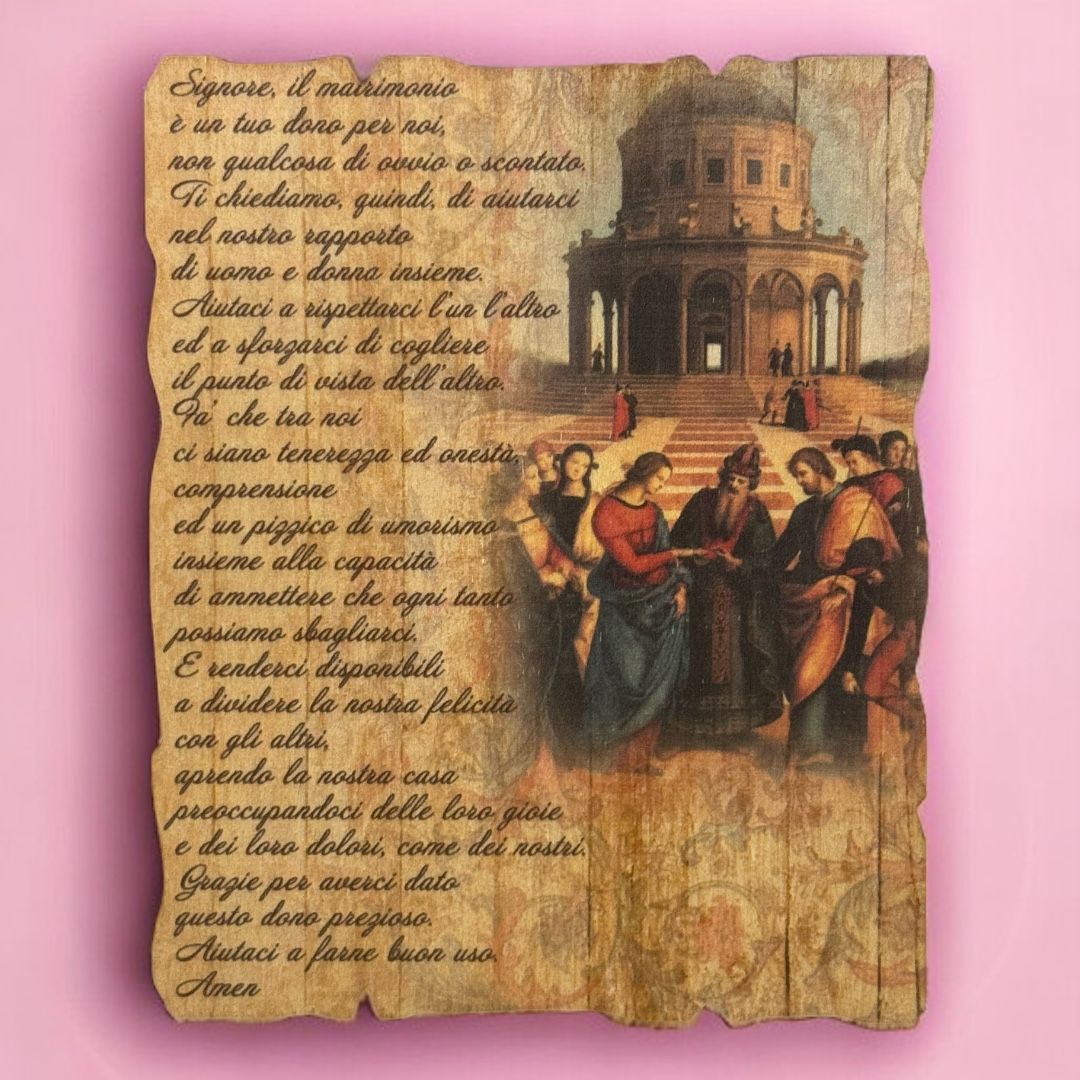 Signore, il matrimonio
è un tuo dono per noi,
non qualcosa di ovvio o scontato.
Ti chiediamo, quindi, di aiutarci
nel nostro rapporto
di uomo e donna insieme.
Aiutaci a rispettarci l'un l'altro
ed a sforzarci di cogliere
il punto di vista dell'altro.
Fa' che tra noi
ci siano tenerezza ed onestà,
comprensione
ed un pizzico di umorismo
insieme alla capacità
di ammettere che ogni tanto
possiamo sbagliarci.
E renderci disponibili
a dividere la nostra felicità
con gli altri,
aprendo la nostra casa
preoccupandoci delle loro gioie
e dei loro dolori, come dei nostri.
Grazie per averci dato
questo dono prezioso.
Aiutaci a farne buon uso.
Amen